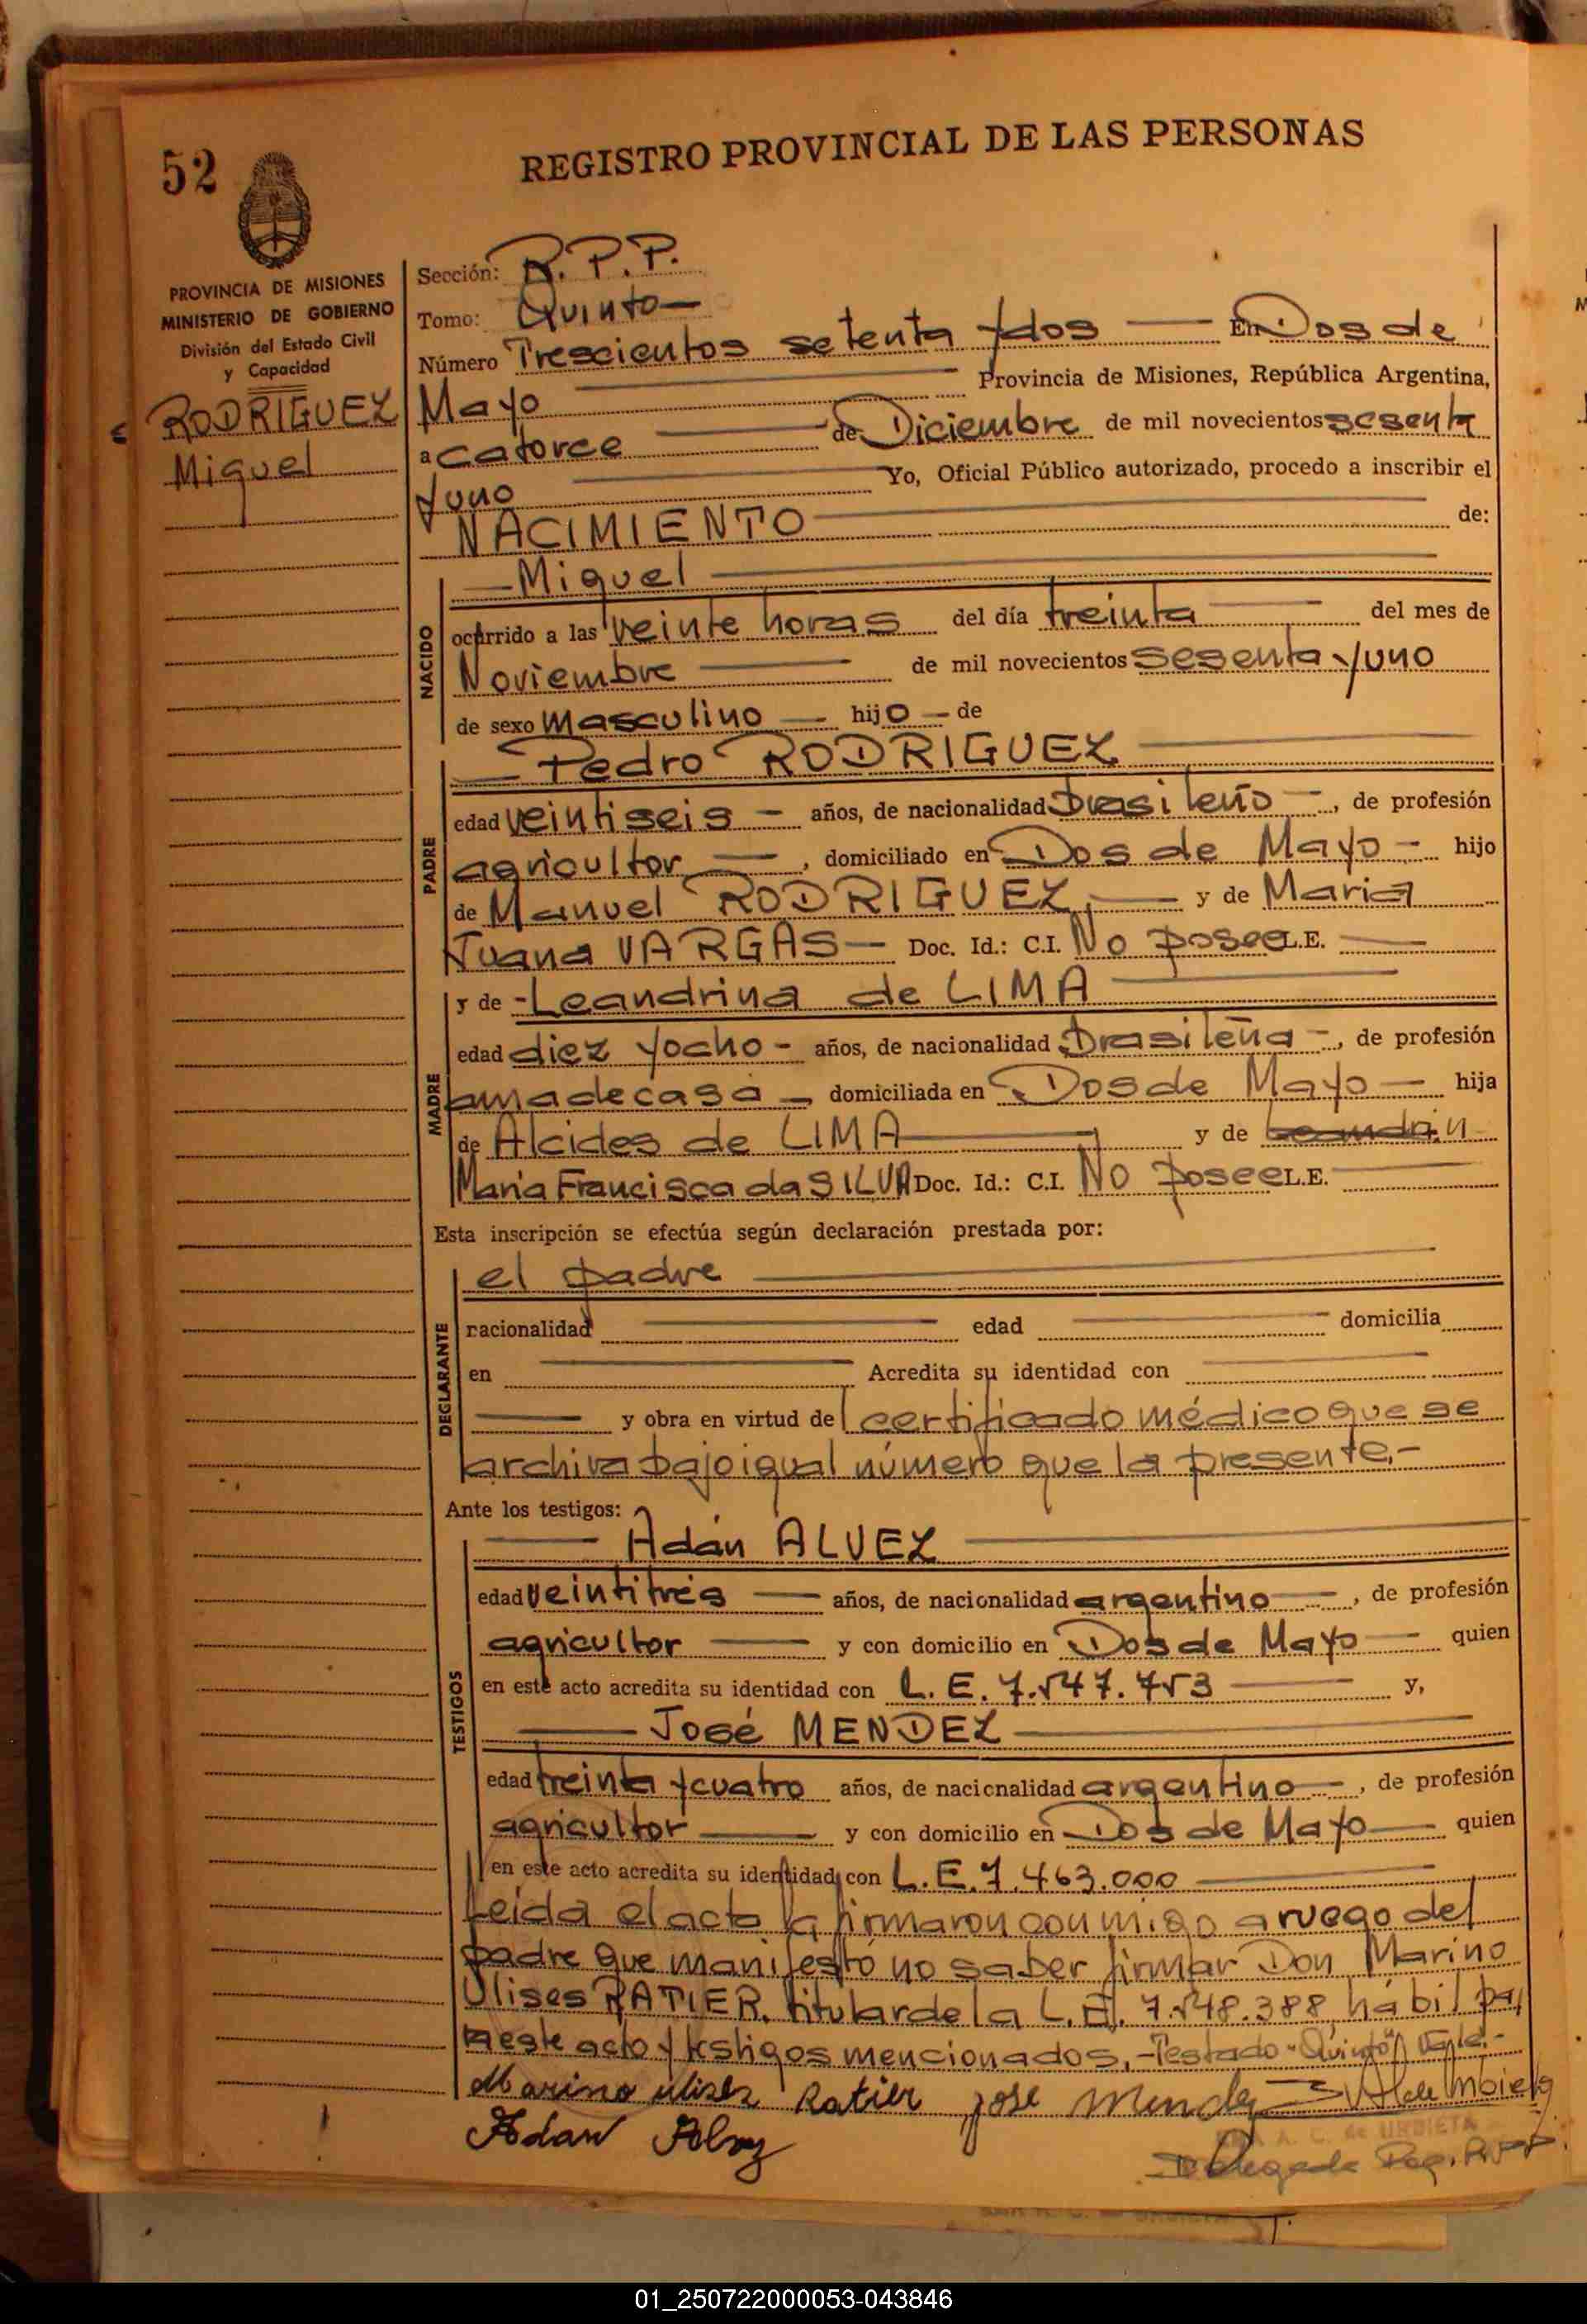 52
REGISTRO PROVINCIAL DE LAS PERSONAS
PROVINCIA DE MISIONES
MINISTERIO DE GOBIERNO
División del Estado Civil
y Capacidad
RODRIGUEZ
Miguel
Sección: R.P.P.
Tomo: Quinto
Número Trescientos setenta y dos En Dos de
Mayo Provincia de Misiones, República Argentina,
a catorce de Diciembre de mil novecientos sesenta
y uno Yo, Oficial Público autorizado, procedo a inscribir el
NACIMIENTO de:
NACIDO
Miguel
ocurrido a las veinte horas del día treinta del mes de
Noviembre de mil novecientos sesenta y uno
de sexo masculino hijo de
PADRE
Pedro RODRIGUEZ
edad veintiseis años, de nacionalidad brasileño, de profesión
agricultor, domiciliado en Dos de Mayo hijo
de Manuel RODRIGUEZ y de Maria
Juana VARGAS Doc. Id.: C.I. No posee L.E.
MADRE
y de Leandrina de LIMA
edad diez y ocho años, de nacionalidad brasileña, de profesión
ama de casa domiciliada en Dos de Mayo hija
de Alcides de LIMA y de
Maria Francisca da SILVA Doc. Id.: C.I. No posee L.E.
Esta inscripción se efectúa según declaración prestada por:
DECLARANTE
el padre
nacionalidad edad domicilia
en Acredita su identidad con
y obra en virtud del certificado médico que se
archiva bajo igual número que la presente.-
Ante los testigos:
TESTIGOS
Adán ALVEZ
edad veintitrés años, de nacionalidad argentino, de profesión
agricultor y con domicilio en Dos de Mayo quien
en este acto acredita su identidad con L.E. 7.547.753 y,
José MENDEZ
edad treinta y cuatro años, de nacionalidad argentino, de profesión
agricultor y con domicilio en Dos de Mayo quien
en este acto acredita su identidad con L.E. 7.463.000
Leida el acta la firmaron conmigo a ruego del
padre que manifestó no saber firmar Don Marino
Ulises RATIER, titular de la L.E. 7.548.388, hábil pa
ra este acto y testigos mencionados.- Testado "Quinto" Vale.-
Marino ulises Ratier jose Mendez
Adan Alvez
A. C. de URBIETA
Delegada
01_250722000053-043846